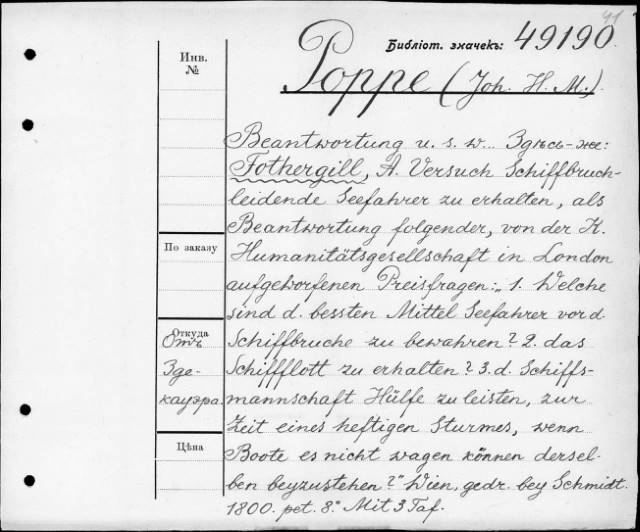 41
Библіот. значекъ: 49190.
Poppe (Joh. H. M.).
Инв.
№
Beantwortung u. s. w... Здѣсь-же:
Fothergill, A. Versuch Schiffbruch-
leidende Seefahrer zu erhalten, als
Beantwortung folgender, von der K.
По заказу
Humanitätsgesellschaft in London
aufgeworfenen Preisfragen: „1. Welche
sind d. bessten Mittel Seefahrer vor d.
Откуда
Отъ
Schiffbruche zu bewahren? 2. das
Зде-
Schiffflott zu erhalten? 3. d. Schiffs-
кауэра
mannschaft Hülfe zu leisten, zur
Zeit eines heftigen Sturmes, wenn
Цѣна
Boote es nicht wagen können dersel-
ben beyzustehen?" Wien, gedr. bey Schmidt.
1800. pet. 8.° Mit 3 Taf.